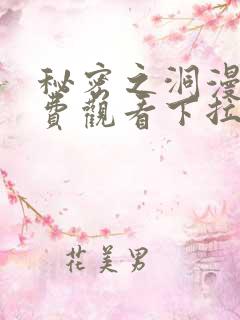 秘密之洞漫
費觀看下拉
花美男